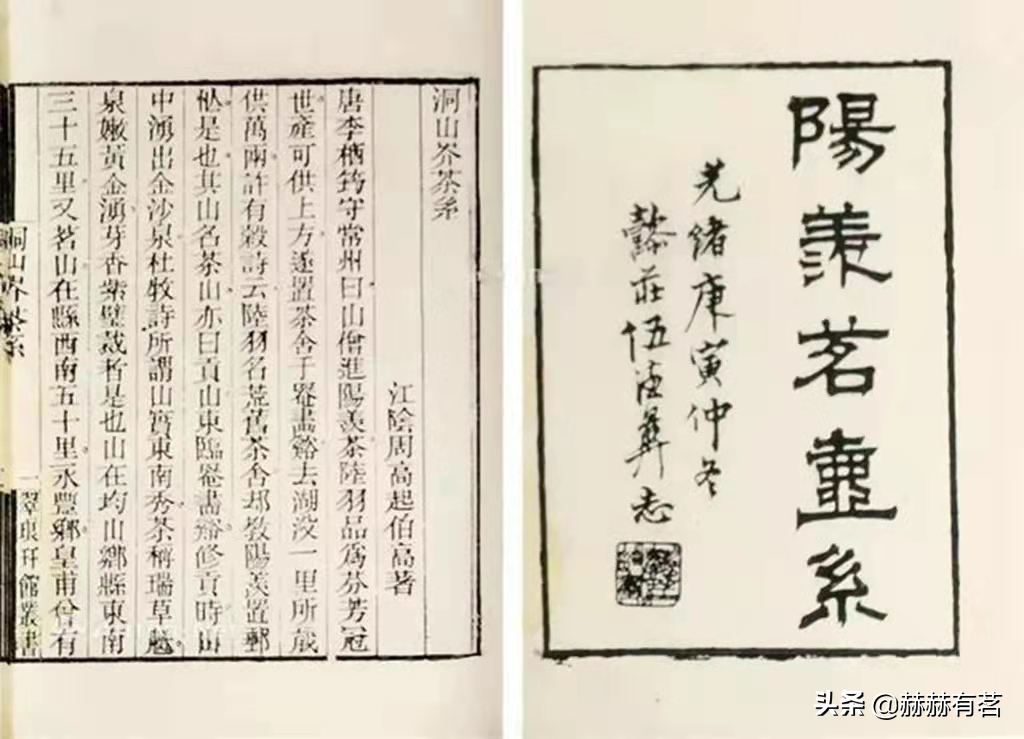 陽羨茗壺系
光緒庚寅仲冬
懿莊伍德彝志
洞山岕茶系
江陰周高起伯高著
唐李栖筠守常州日山僧進陽羨茶陸羽品爲芬芳冠
世產可供上方遂置茶舍于罨畫谿去湖没一里所歲
供萬兩許有穀詩云陸羽名荒舊茶舍却敎陽羨置郵
忙是也其山名茶山亦曰貢山東臨罨畫谿修貢時山
中湧出金沙泉杜牧詩所謂山實東南秀茶稱瑞草魁
泉嫩黃金湧牙香紫璧裁者是也山在均山鄉縣東南
三十五里又茗山在縣西南五十里永豐鄉皇甫曾有
洞山岕茶系
一
翠琅玕館叢書
头条 @赫赫有茗